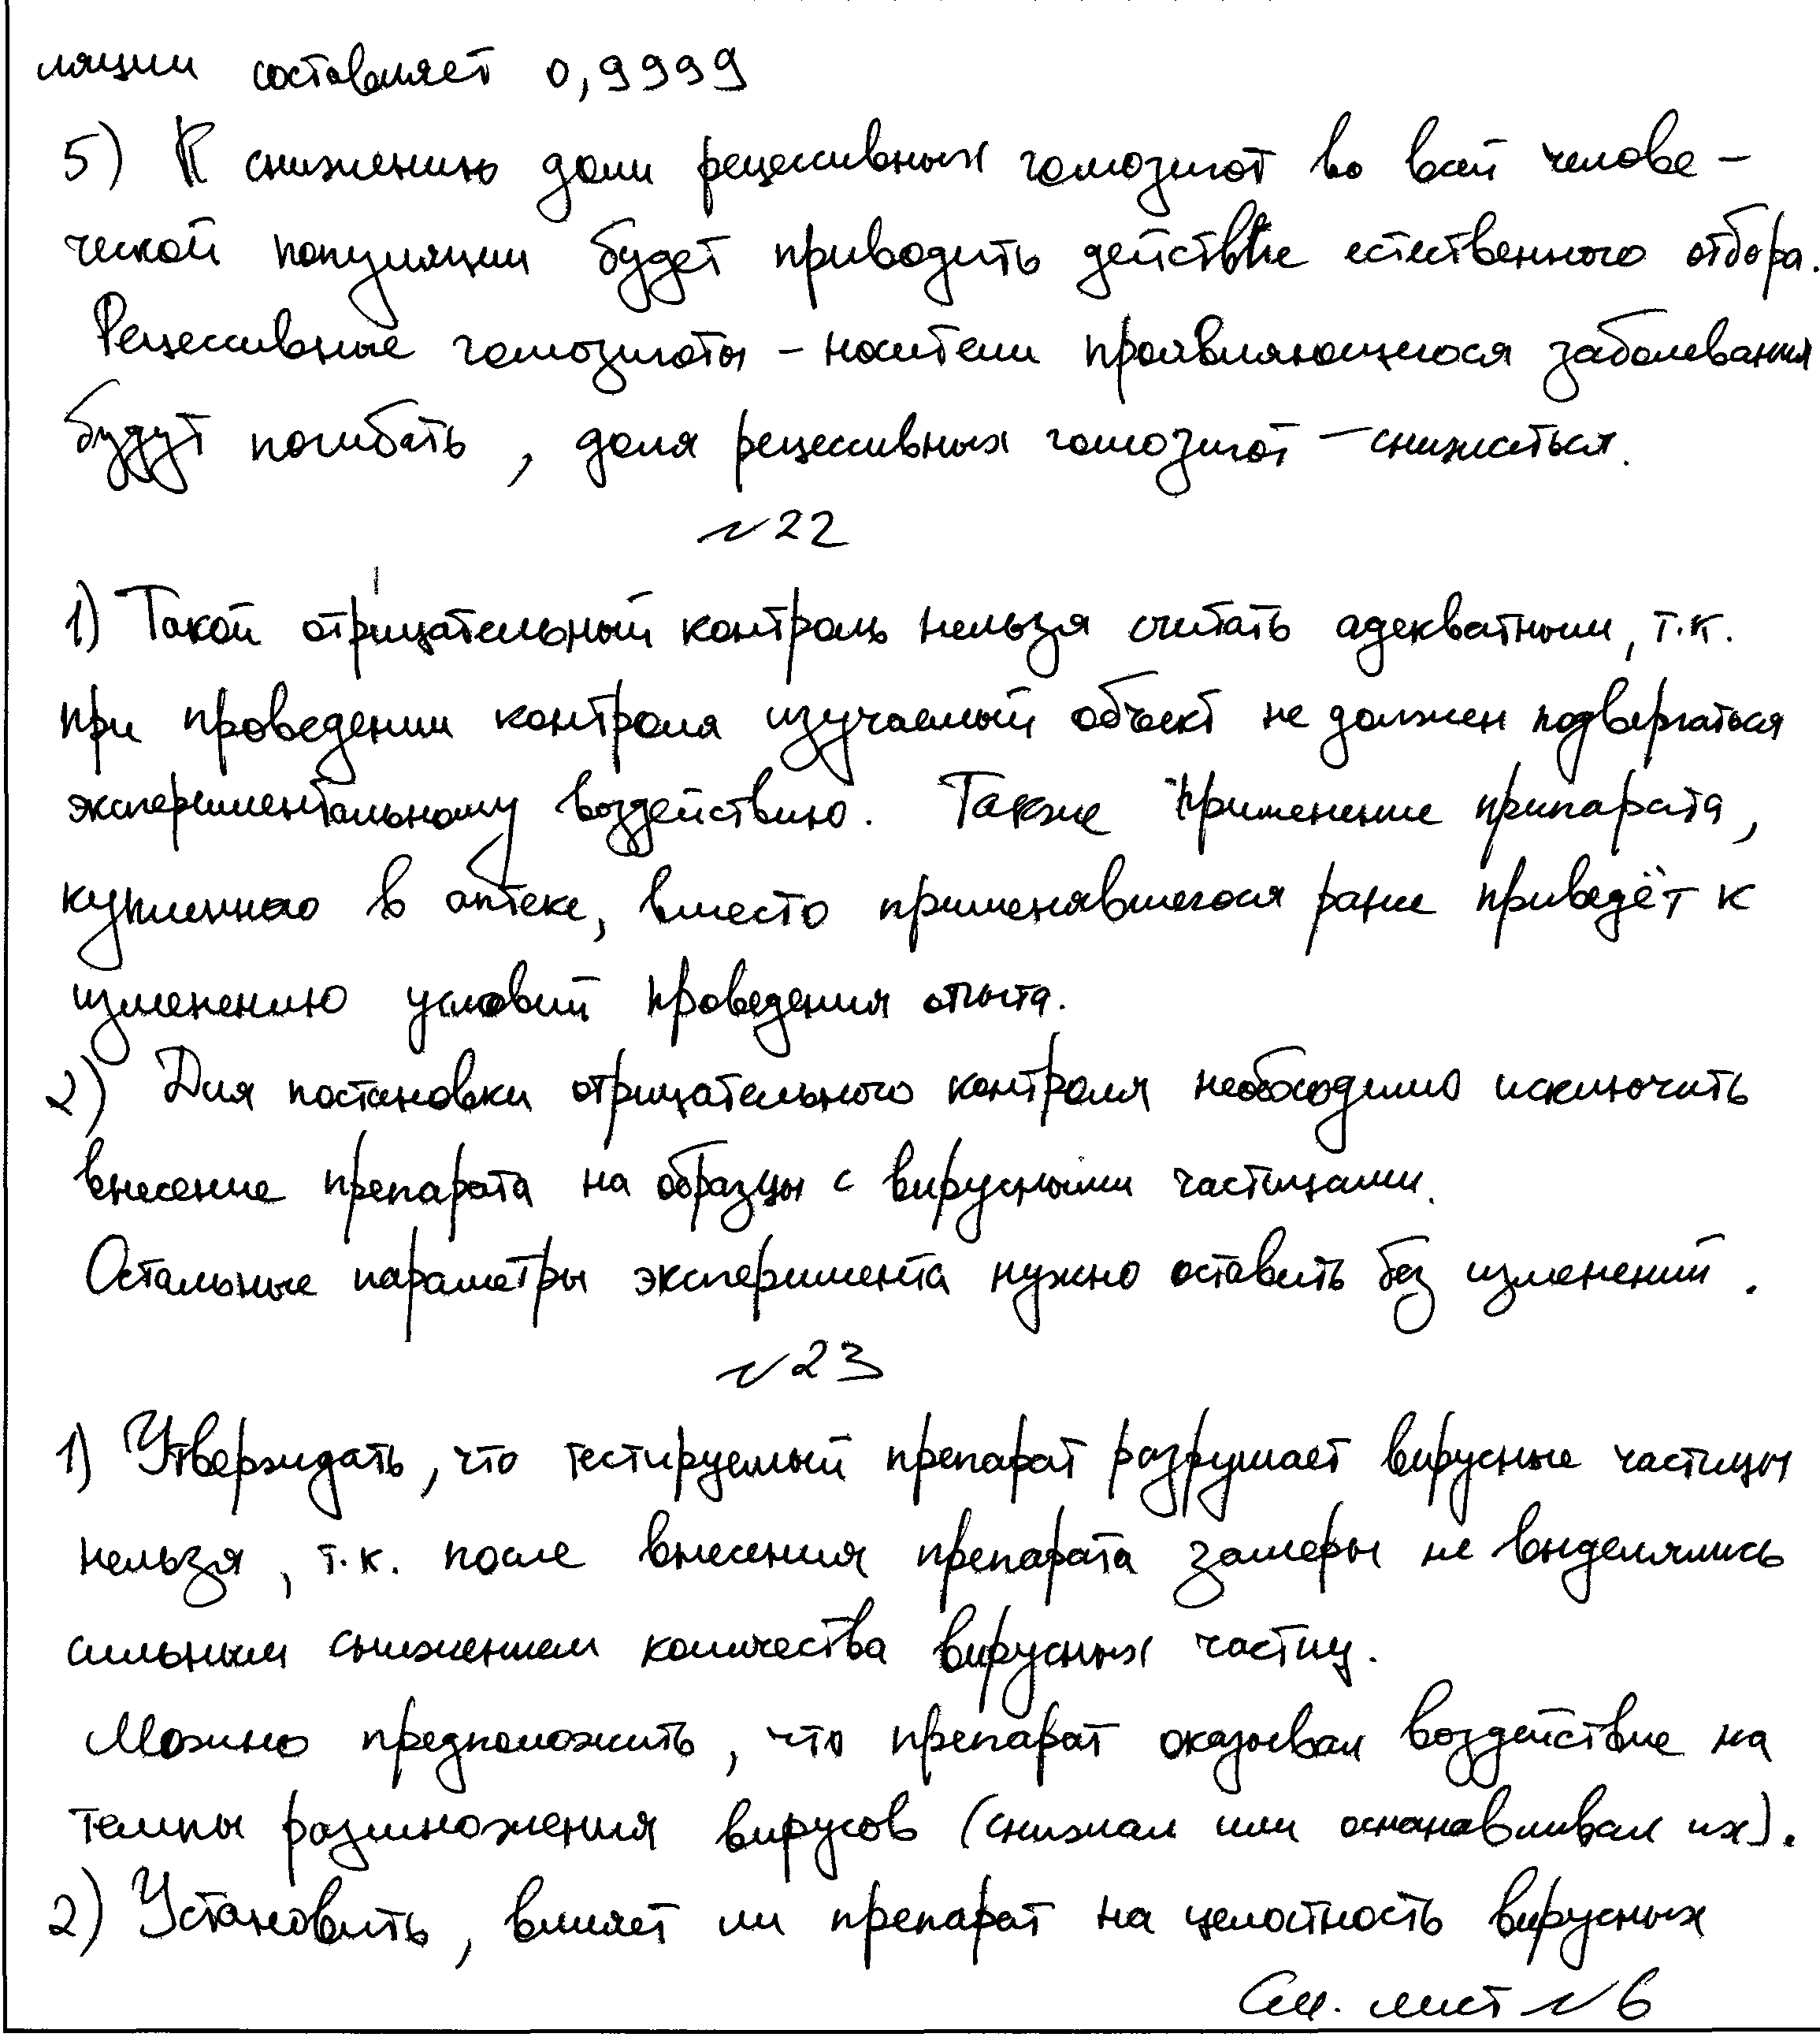 ляции составляет 0,9999
5) К снижению доли рецессивных гомозигот во всей челове-
ческой популяции будет приводить действие естественного отбора.
Рецессивные гомозиготы - носители проявляющегося заболевания
будут погибать, доля рецессивных гомозигот - снижаться.
№22
1) Такой отрицательный контроль нельзя считать адекватным, т.к.
при проведении контроля изучаемый объект не должен подвергаться
экспериментальному воздействию. Также применение препарата,
купленного в аптеке, вместо применявшегося ранее приведёт к
изменению условий проведения опыта.
2) Для постановки отрицательного контроля необходимо исключить
внесение препарата на образцы с вирусными частицами.
Остальные параметры эксперимента нужно оставить без изменений.
№23
1) Утверждать, что тестируемый препарат разрушает вирусные частицы
нельзя, т.к. после внесения препарата замеры не выделялись
сильным снижением количества вирусных частиц.
Можно предположить, что препарат оказывал воздействие на
темпы размножения вирусов (снижал или останавливал их).
2) Установить, влияет ли препарат на целостность вирусных
См. лист №6